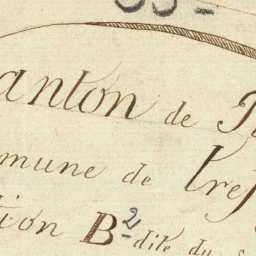 anton de
mune de Tref
tion B² dite du